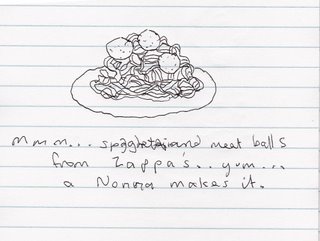 mmm... spaghetti and meat balls
from Zappa's.. yum...
a Nonna makes it.